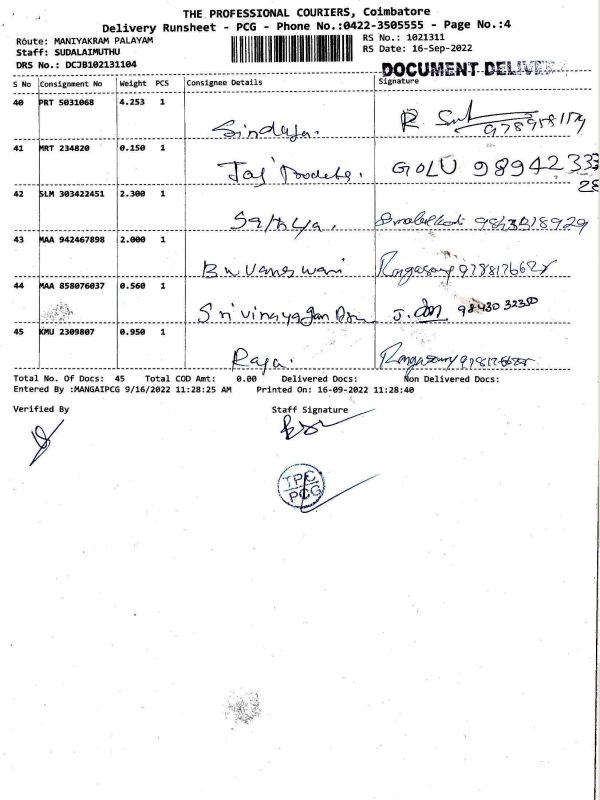 THE PROFESSIONAL COURIERS, Coimbatore
Delivery Runsheet - PCG - Phone No.:0422-3505555 - Page No.:4
Route: MANIYAKRAM PALAYAM RS No.: 1021311
Staff: SUDALAIMUTHU RS Date: 16-Sep-2022
DRS No.: DCJB102131104
DOCUMENT
S No Consignment No Weight PCS Consignee Details Signature
40 PRT 5031068 4.253 1
R.
41 MRT 234820 0.150 1
GOLU 98942333
28
42 SLM 303422451 2.300 1
Sathya.
43 MAA 942467898 2.000 1
Buvaneswari Rangasamy
44 MAA 858076037 0.560 1
Srivinayagan J. 98430 32350
45 KMU 2309807 0.950 1
Raja. Rangasamy
Total No. Of Docs: 45 Total COD Amt: 0.00 Delivered Docs: Non Delivered Docs:
Entered By :MANGAIPCG 9/16/2022 11:28:25 AM Printed On: 16-09-2022 11:28:40
Verified By Staff Signature
TPC
PCG